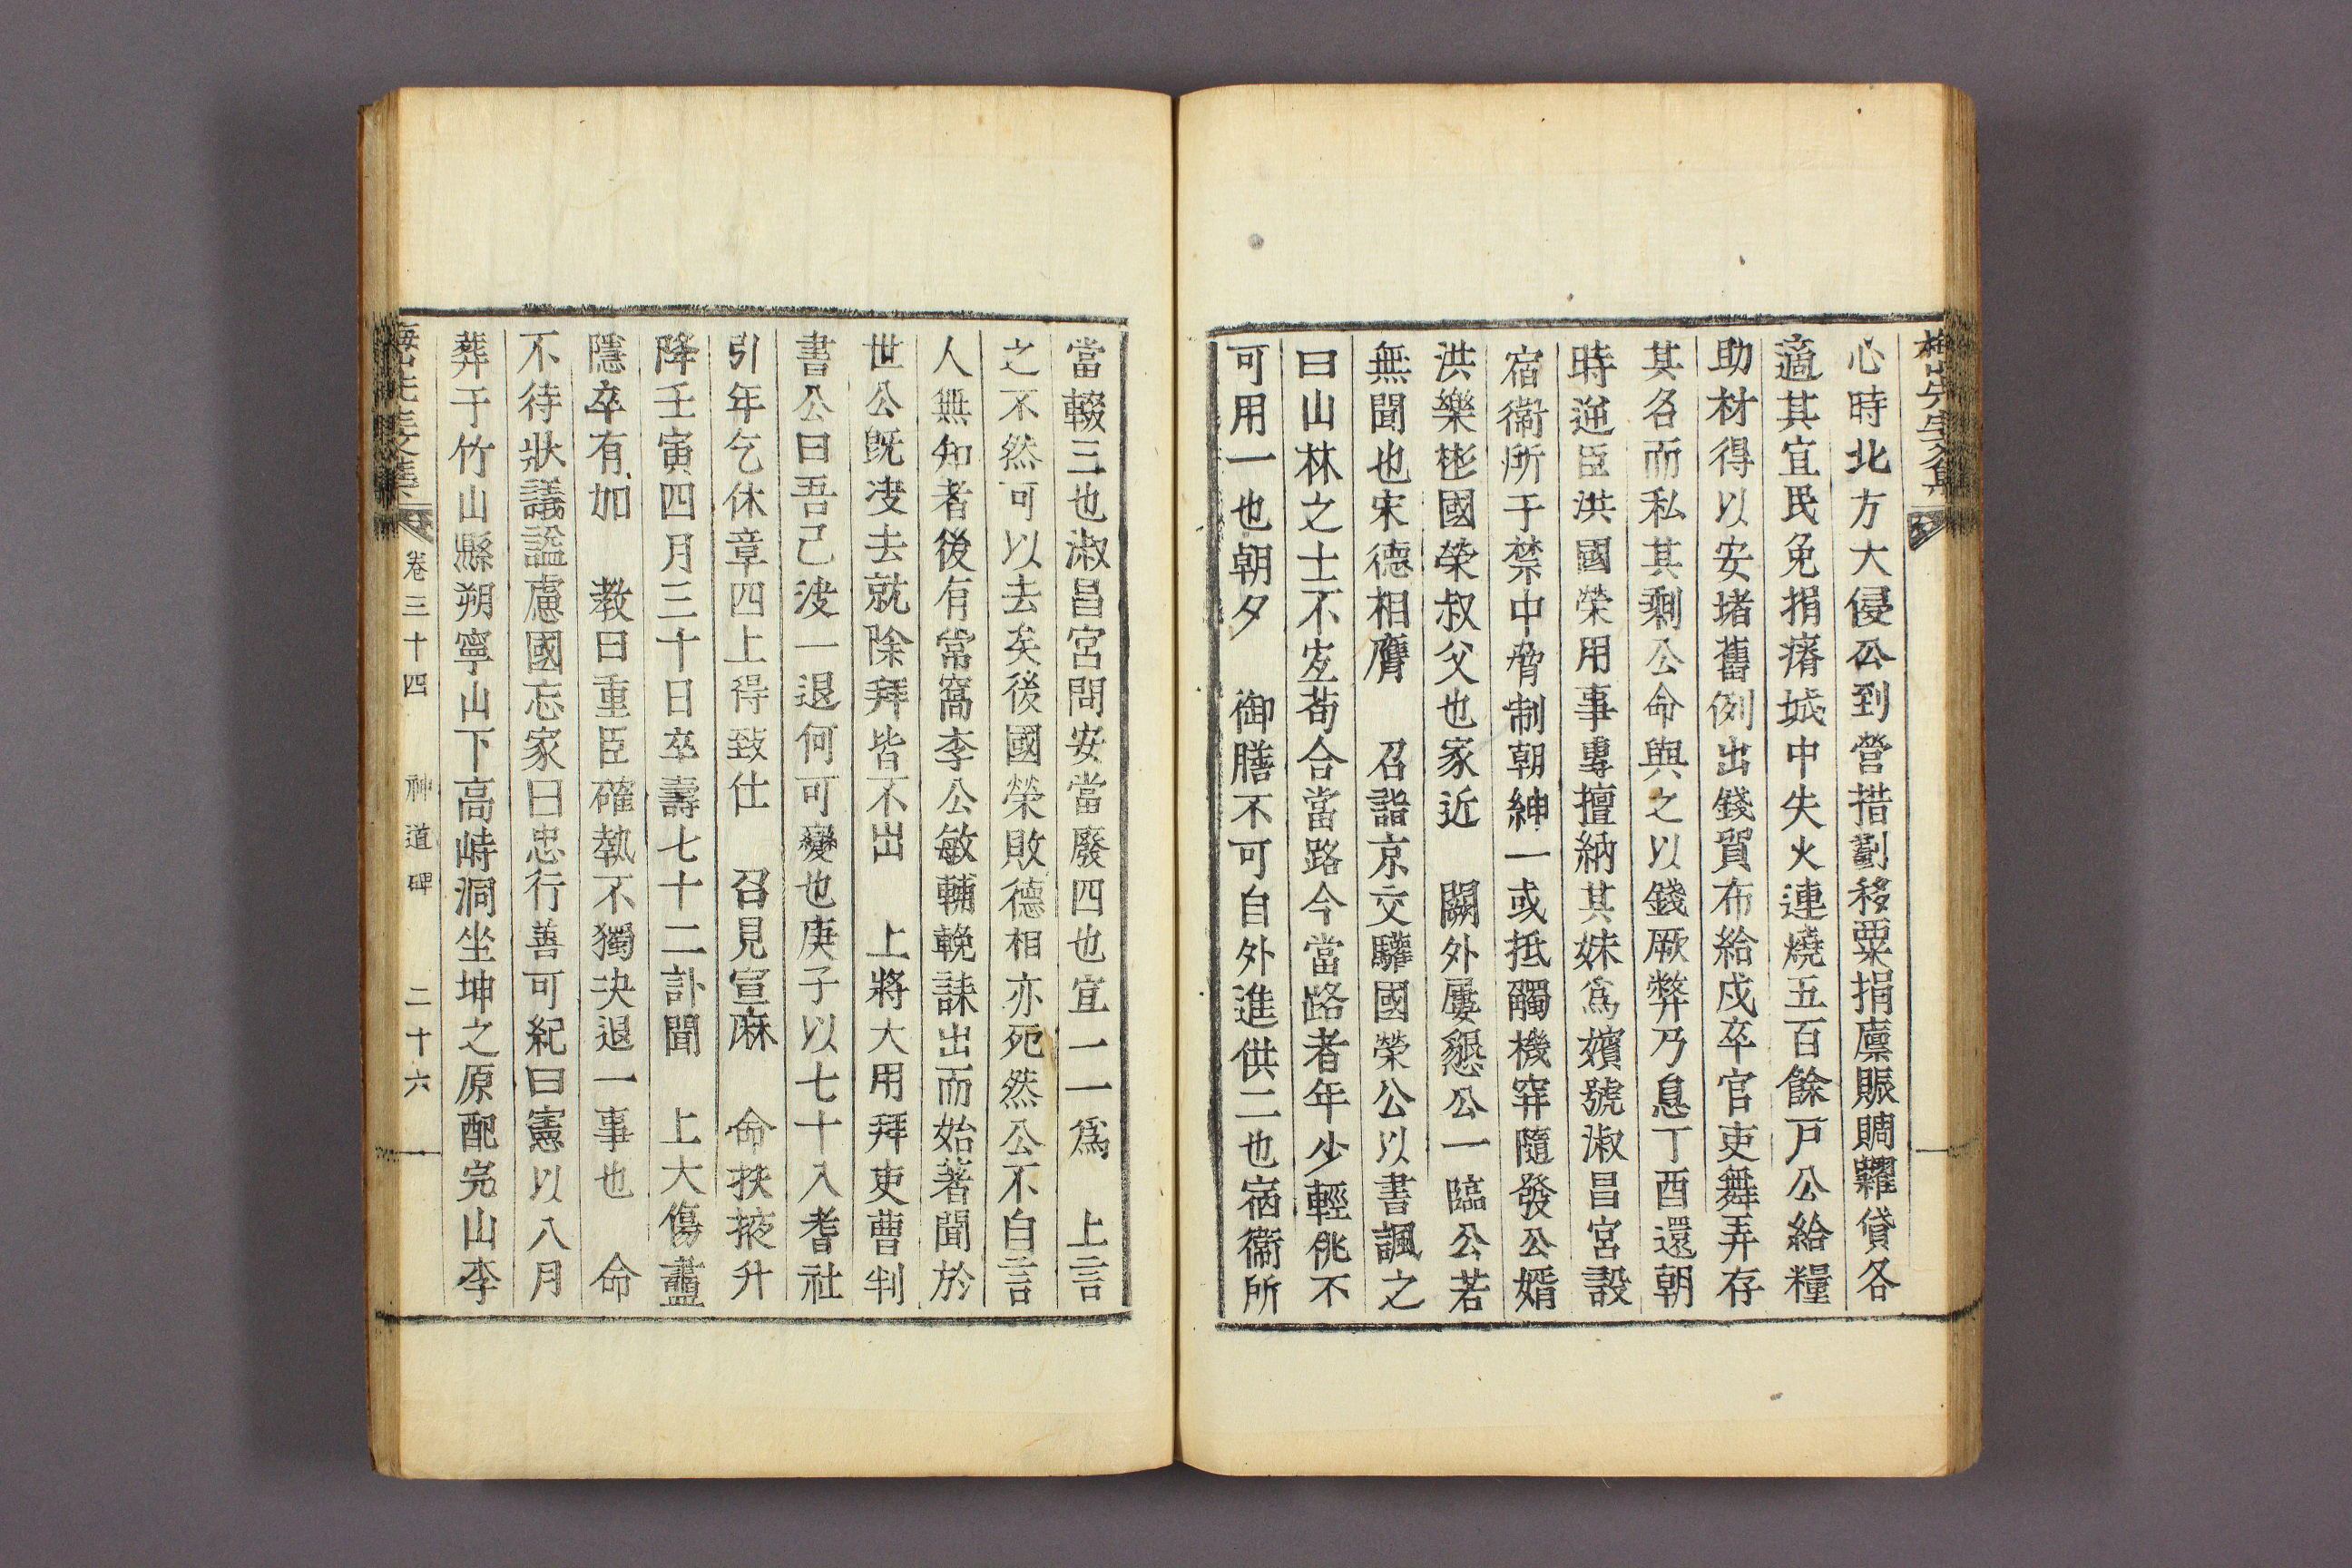 梅山先生文集
心時北方大侵公到營措劃移粟捐廩賑賙糶貸各
適其宜民免捐瘠城中失火連燒五百餘戶公給糧
助材得以安堵舊例出錢貿布給戍卒官吏舞弄存
其名而私其剩公命與之以錢厥弊乃息丁酉還朝
時逆臣洪國榮用事專擅納其妹爲嬪號淑昌宮設
宿衞所于禁中脅制朝紳一或抵觸機穽隨發公婿
洪樂彬國榮叔父也家近 闕外屢懇公一臨公若
無聞也宋德相膺 召詣京交驩國榮公以書諷之
曰山林之士不宐苟合當路今當路者年少輕佻不
可用一也朝夕 御膳不可自外進供二也宿衞所
當輟三也淑昌宮問安當廢四也宜一一爲 上言
之不然可以去矣後國榮敗德相亦死然公不自言
人無知者後有常窩李公敏輔輓誄出而始著聞於
世公旣決去就除拜皆不出 上將大用拜吏曹判
書公曰吾已決一退何可變也庚子以七十入耆社
引年乞休章四上得致仕 召見宣麻 命扶掖升
降壬寅四月三十日卒壽七十二訃聞 上大傷盡
隱卒有加 教曰重臣確執不獨決退一事也 命
不待狀議諡慮國忘家曰忠行善可紀曰憲以八月
葬于竹山縣朔寧山下高峙洞坐坤之原配完山李
梅山先生文集 卷三十四 神道碑 二十六